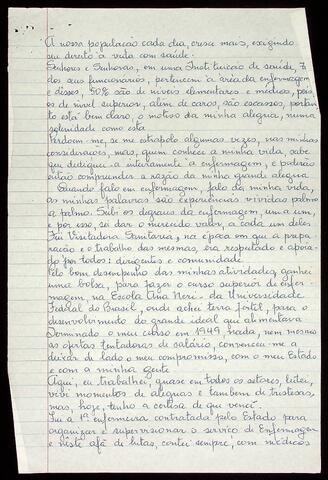 A nossa população cada dia, cresce mais, exigindo
seu direito à vida com saúde.
Senhores e Senhoras, em uma Instituição de saúde,
dos seus funcionários, pertencem à área da enfermagem
e desses, 50% são de níveis elementares e médios, pois
os de nível superior, além de caros, são escassos, portan
to está bem claro, o motivo da minha alegria, numa
solenidade como esta
Perdoem-me, se me extrapolo algumas vezes, nas minhas
considerações, mas, quem conhece a minha vida, sabe
que dediquei-a inteiramente à enfermagem, e poderão
então compreender a razão da minha grande alegria
Quando falo em enfermagem, falo da minha vida,
as minhas palavras são experiências vividas palmo
a palmo. Subi os degraus da enfermagem, um a um,
e por isso, sei dar o merecido valor, a cada um deles
Fui Visitadora Sanitária, na época em que a prepa-
ração e o trabalho das mesmas, era respeitado e apoia-
do por todos: dirigentes e comunidade
Pelo bom desempenho das minhas atividades, ganhei
uma bolsa, para fazer o curso superior de enfer-
magem, na Escola Ana Neri - da Universidade
Federal do Brasil, onde achei terra fértil, para o
desenvolvimento do grande ideal que alimentava
Terminado o meu curso em 1949, nada, nem mesmo
as ofertas tentadoras de salário, convenceu-me a
deixar de lado o meu compromisso, com o meu Estado
e com a minha gente
Aqui, eu trabalhei, quase em todos os setores, lutei,
vivi momentos de alegrias e também de tristezas,
mas, hoje, tenho a certeza de que venci.
Fui a 1ª enfermeira contratada pelo Estado para
organizar e supervisionar o serviço de Enfermagem
e neste afã de lutas, contei sempre, com médicos